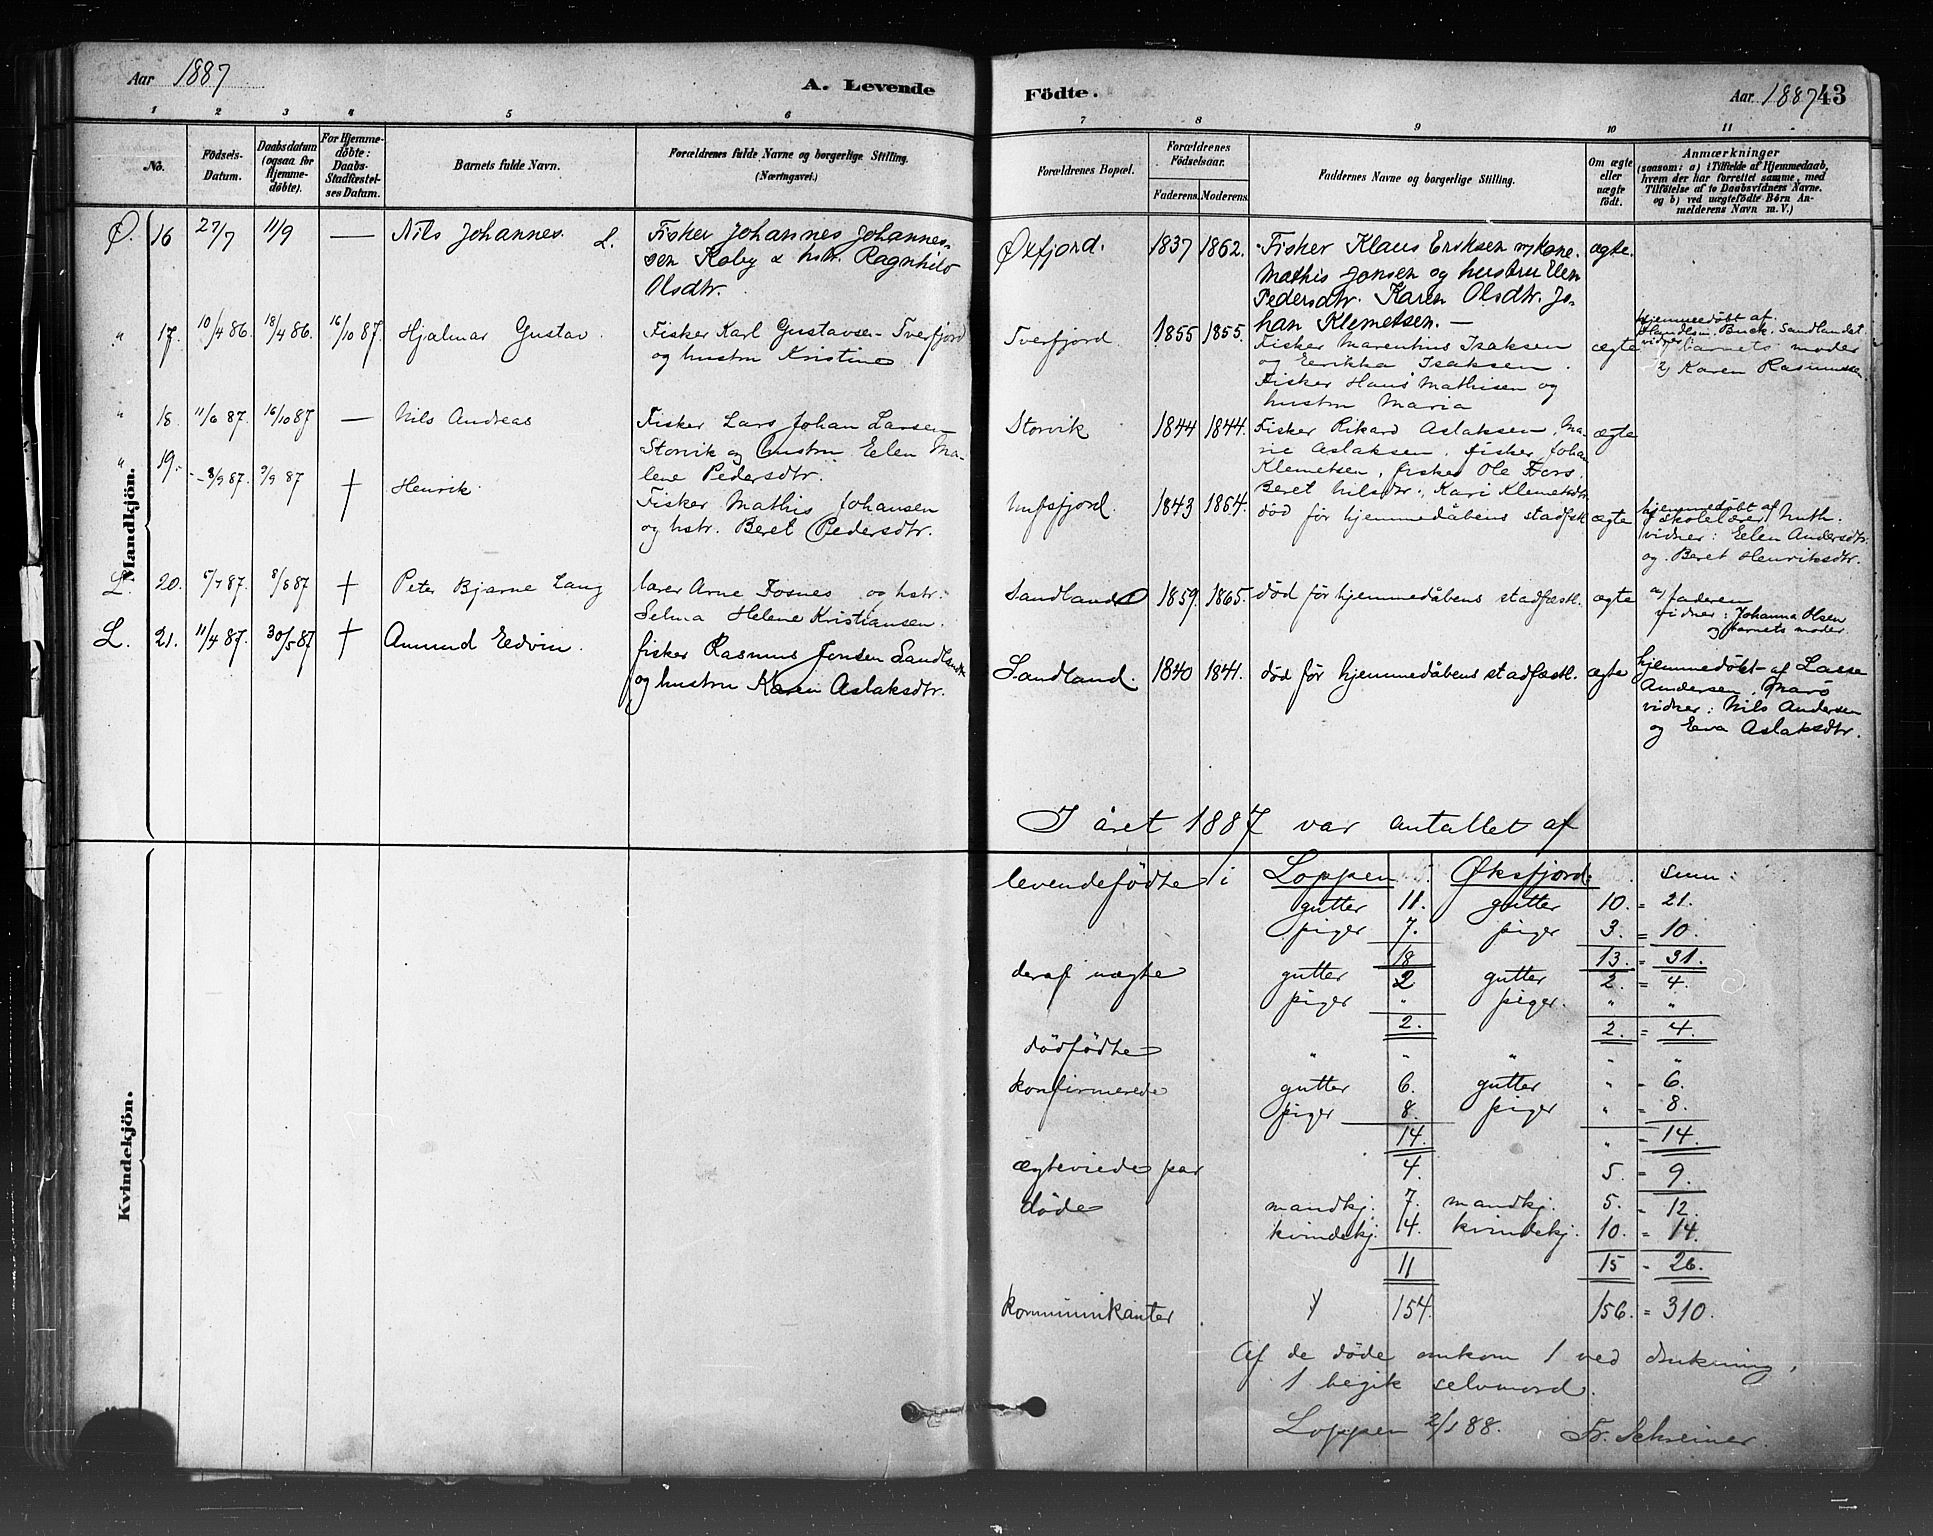 Aar 1887
A. Levende
1 2 3 4 5 6
No.
Födsels-
Datum.
Daabsdatum
(ogsaa for
Hjemme-
døbte).
For Hjemme-
døbte:
Daabs-
Stadfæstel-
ses Datum.
Barnets fulde Navn.
Forældrenes fulde Navne og borgerlige Stilling.
(Næringsvei.)
Mandkjön.
Ø. 16 27/7 11/9 — Nils Johannes. L. Fisker Johannes Johannes-
sen Koby & hstr. Ragnhild
Olsdtr.
" 17. 10/4 86. 18/4 86. 16/10 87. Hjalmar Gustav. Fisker Karl Gustavsen Tverfjord
og hustru Kristine
" 18. 11/6 87. 16/10 87 — Nils Andreas Fisker Lars Johan Larsen
Storvik og hustru Elen Ma-
lene Pedersdtr.
" 19. 3/9 87. 9/9 87 † Henrik. Fisker Mathis Johansen
og hstr. Beret Pedersdtr.
L. 20. 5/7 87. 8/8 87 † Peter Bjarne Lang lærer Arne Fosnes og hstr.
Selma Helene Kristiansen.
L. 21. 11/4 87. 30/5 87 † Amund Edvin. fisker Rasmus Jonsen Sandland
og hustru Karen Aslaksdtr.
Kvindekjön.
Födte.
Aar 1887 43
7 8 9 10 11
Forældrenes Bopæl.
Forældrenes
Födselsaar.
Faderens. Moderens.
Faddernes Navne og borgerlige Stilling.
Om ægte
eller
uægte
født.
Anmærkninger
(saasom: a) i Tilfælde af Hjemmedaab,
hvem der har forrettet samme, med
Tilföielse af to Daabsvidners Navne.
og b) ved uægtefödte Börn An-
melderens Navn m. V.)
Øxfjord. 1837 1862. Fisker Klaus Eriksen og kone. ægte.
Mathis Jonsen og hustru Elen
Pedersdtr. Karen Olsdtr. Jo-
han Klemetsen. —
Tverfjord. 1855 1855. Fisker Marentius Isaksen ægte
og Erikka Isaksen.
Fisker Hans Mathisen og
hustru Maria
hjemmedøbt af
Handlsm. Buck. Sandlandet
vidner barnets moder
2) Karen Rasmussen.
Storvik 1844 1844. Fisker Rikard Aslaksen, Ma- ægte
rie Aslaksen, fisker Johan
Klemetsen, fisker Ole Fors
Beret Nilsdtr., Kari Klemetsdtr.
Nufsfjord. 1843 1864. død før hjemmedåbens stadfæst. ægte
hjemmedøbt af
skolelærer Nuth.
vidner: Elen Andersdtr.
og Beret Henriksdtr.
Sandland 1859. 1865. død før hjemmedåbens stadfæstl. ægte
af faderen
vidner: Johanna Olsen
og barnets moder
Sandland. 1840 1841. død før hjemmedåbens stadfæstl. ægte
hjemmedøbt af Lasse
Andersen, Marø
vidner: Nils Andersen
og Eva Aslaksdtr.
I året 1887 var antallet af
levendefødte i Loppen Øksfjord: Sum:
gutter 11. gutter 10. = 21.
piger 7. piger 3. = 10.
18 13. = 31.
deraf uægte gutter 2 gutter 2. = 4.
piger " piger. " "
2. 2. = 4.
dødfødte " " " " "
konfirmerede gutter 6. gutter " = 6.
piger 8. piger " = 8.
14. " = 14.
ægteviede par 4. 5 = 9.
døde mandkj. 7. mandkj. 5. = 12.
kvindekj. 14. kvindekj. 10. = 14.
11 15 = 26.
kommunikanter 154. 156. = 310.
Af de døde omkom 1 ved drukning,
1 begik selvmord.
Loppen 2/1 88. Fr. Schreiner.